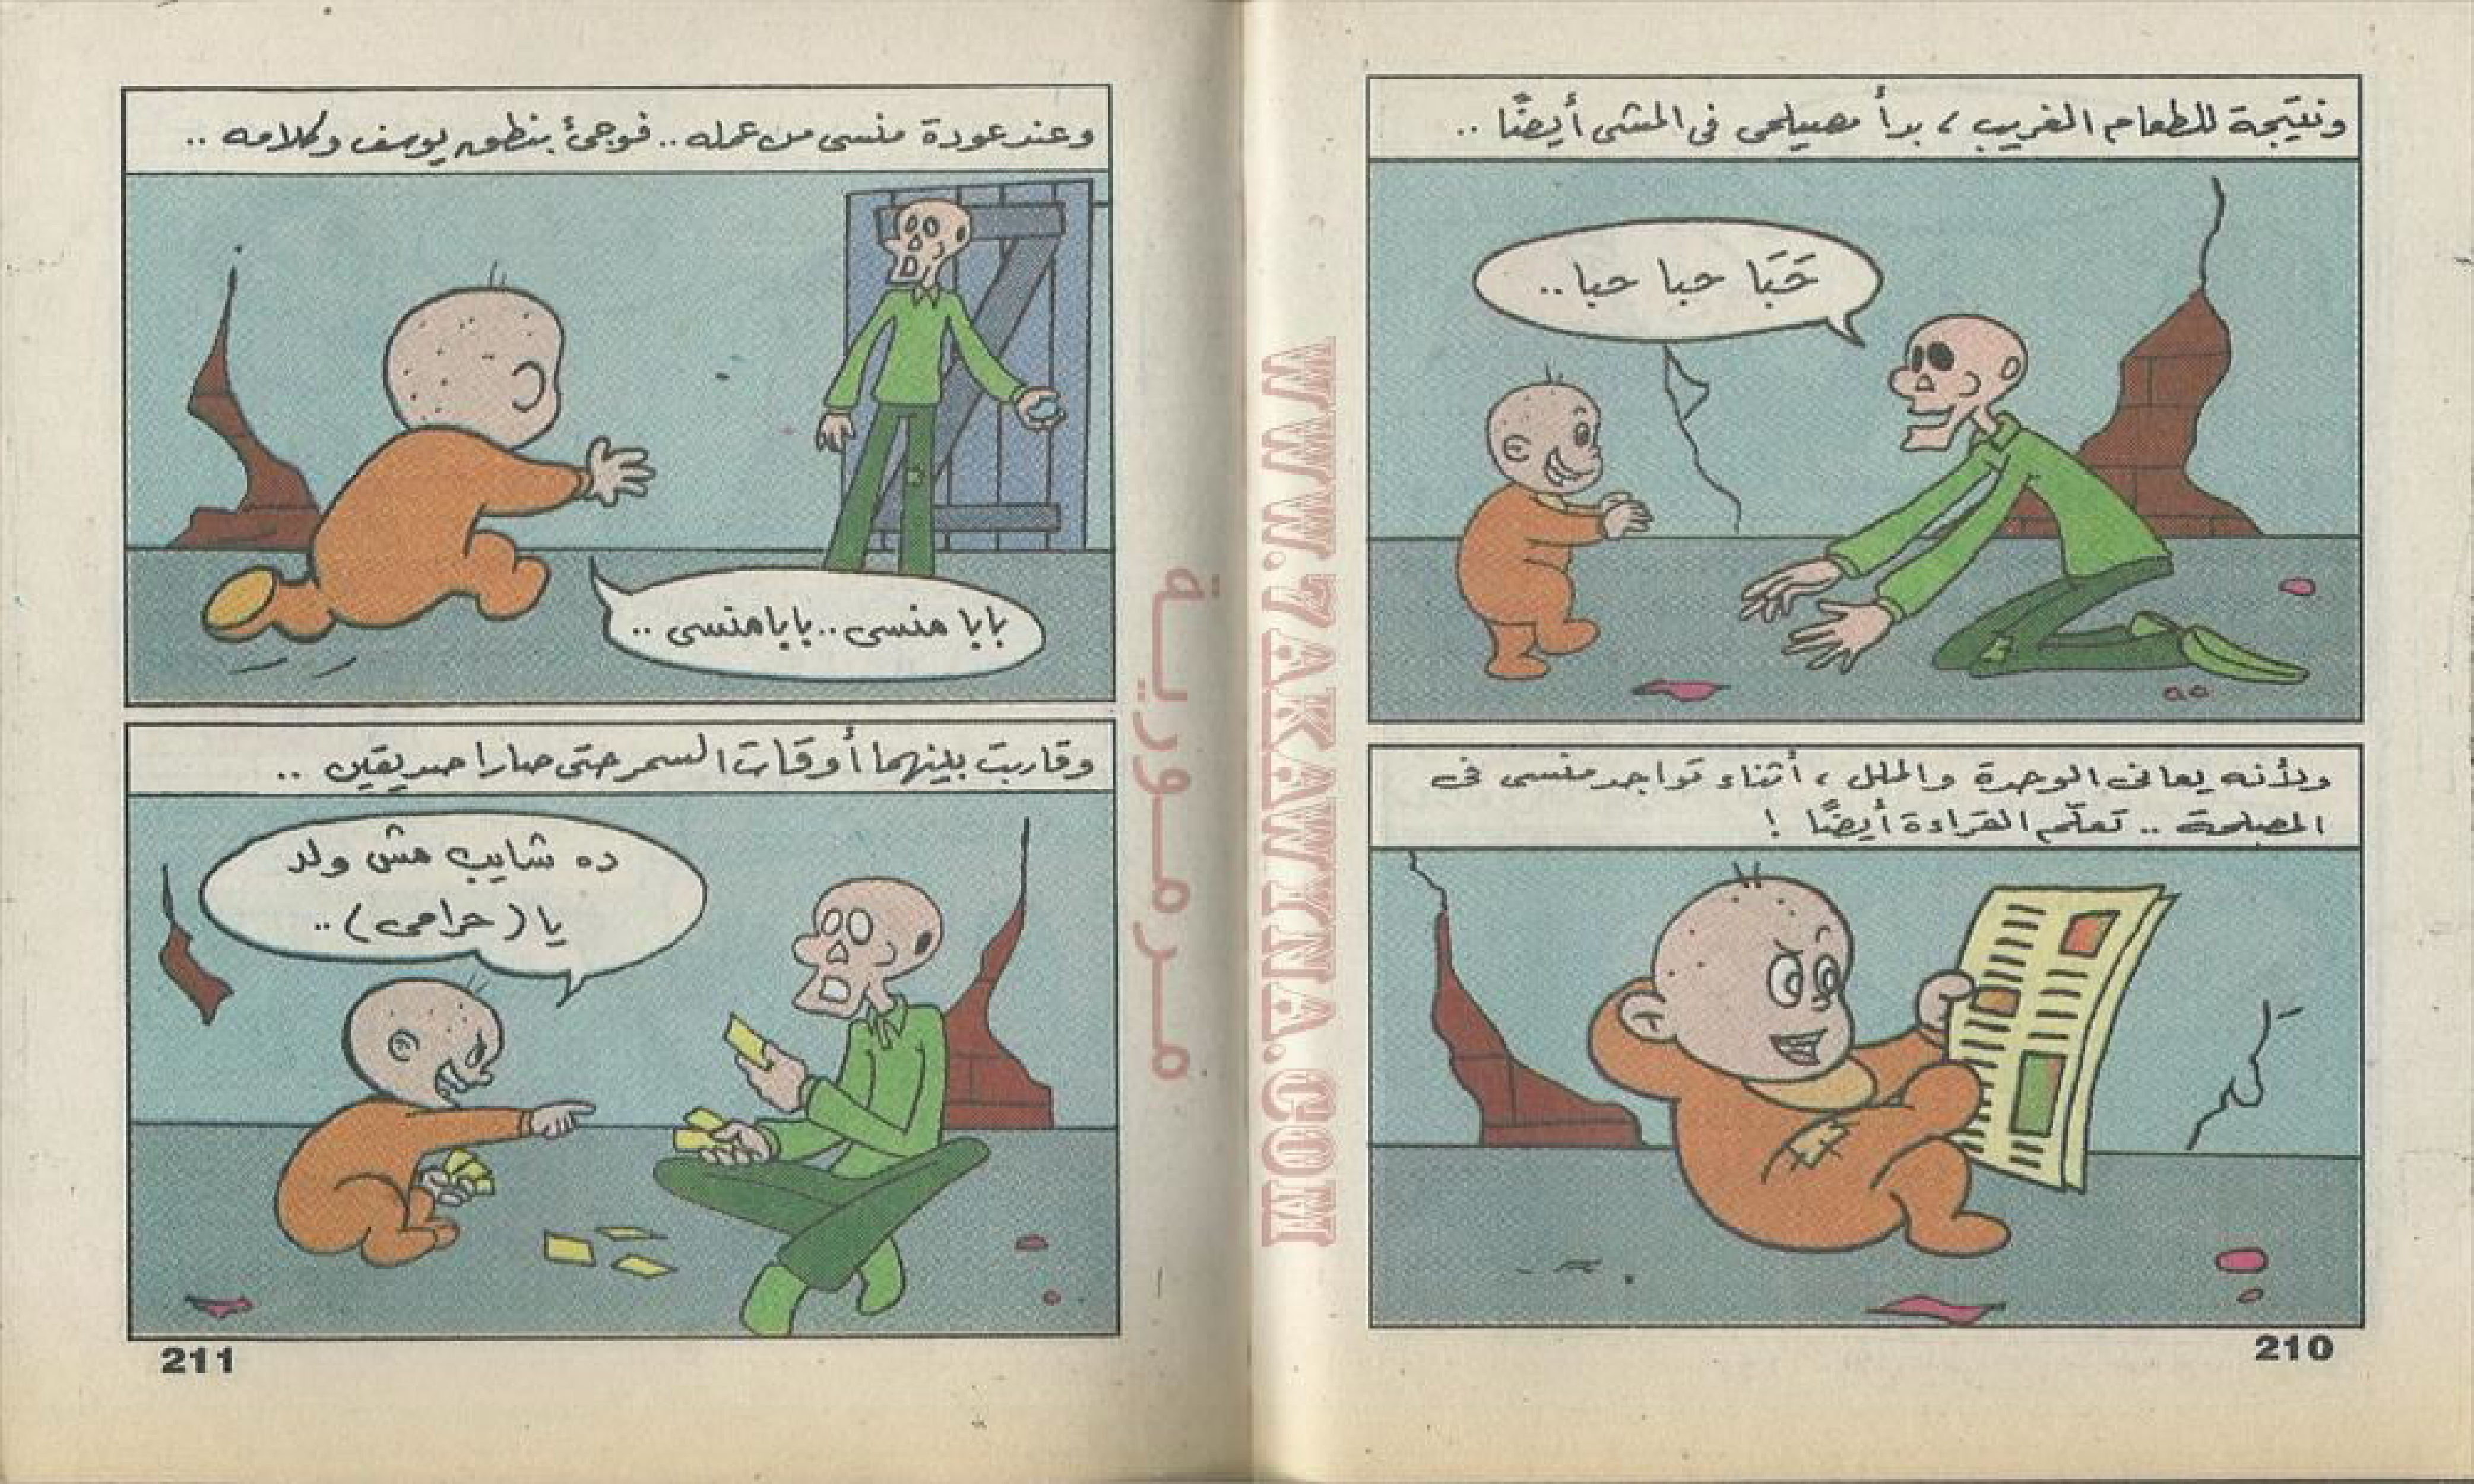 ونتيجة للطعام الغريب، بدأ مصيلحى فى المشى أيضًا ..
حَبَا حبا حبا ..
ولأنه يعانى الوحدة والملل، أثناء تواجد منسى فى
المصلحة .. تعلّم القراءة أيضًا !
210
وعند عودة منسى من عمله .. فوجئ بنطق يوسف وكلامه ..
بابا منسى .. بابا منسى ..
وقاربت بينهما أوقات السمر حتى صارا صديقين ..
ده شايب مش ولد
يا (حرامى) ..
211
WWW.7AKAWINA.COM